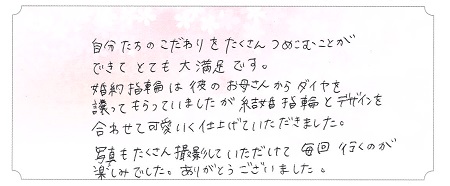 自分たちのこだわりをたくさんつめこむことが
できて とても 大満足です。
婚約指輪は彼のお母さんからダイヤを
譲ってもらっていましたが結婚指輪とデザインを
合わせて可愛いく仕上げていただきました。
写真もたくさん撮影していただけて 毎回 行くのが
楽しみでした。ありがとうございました。